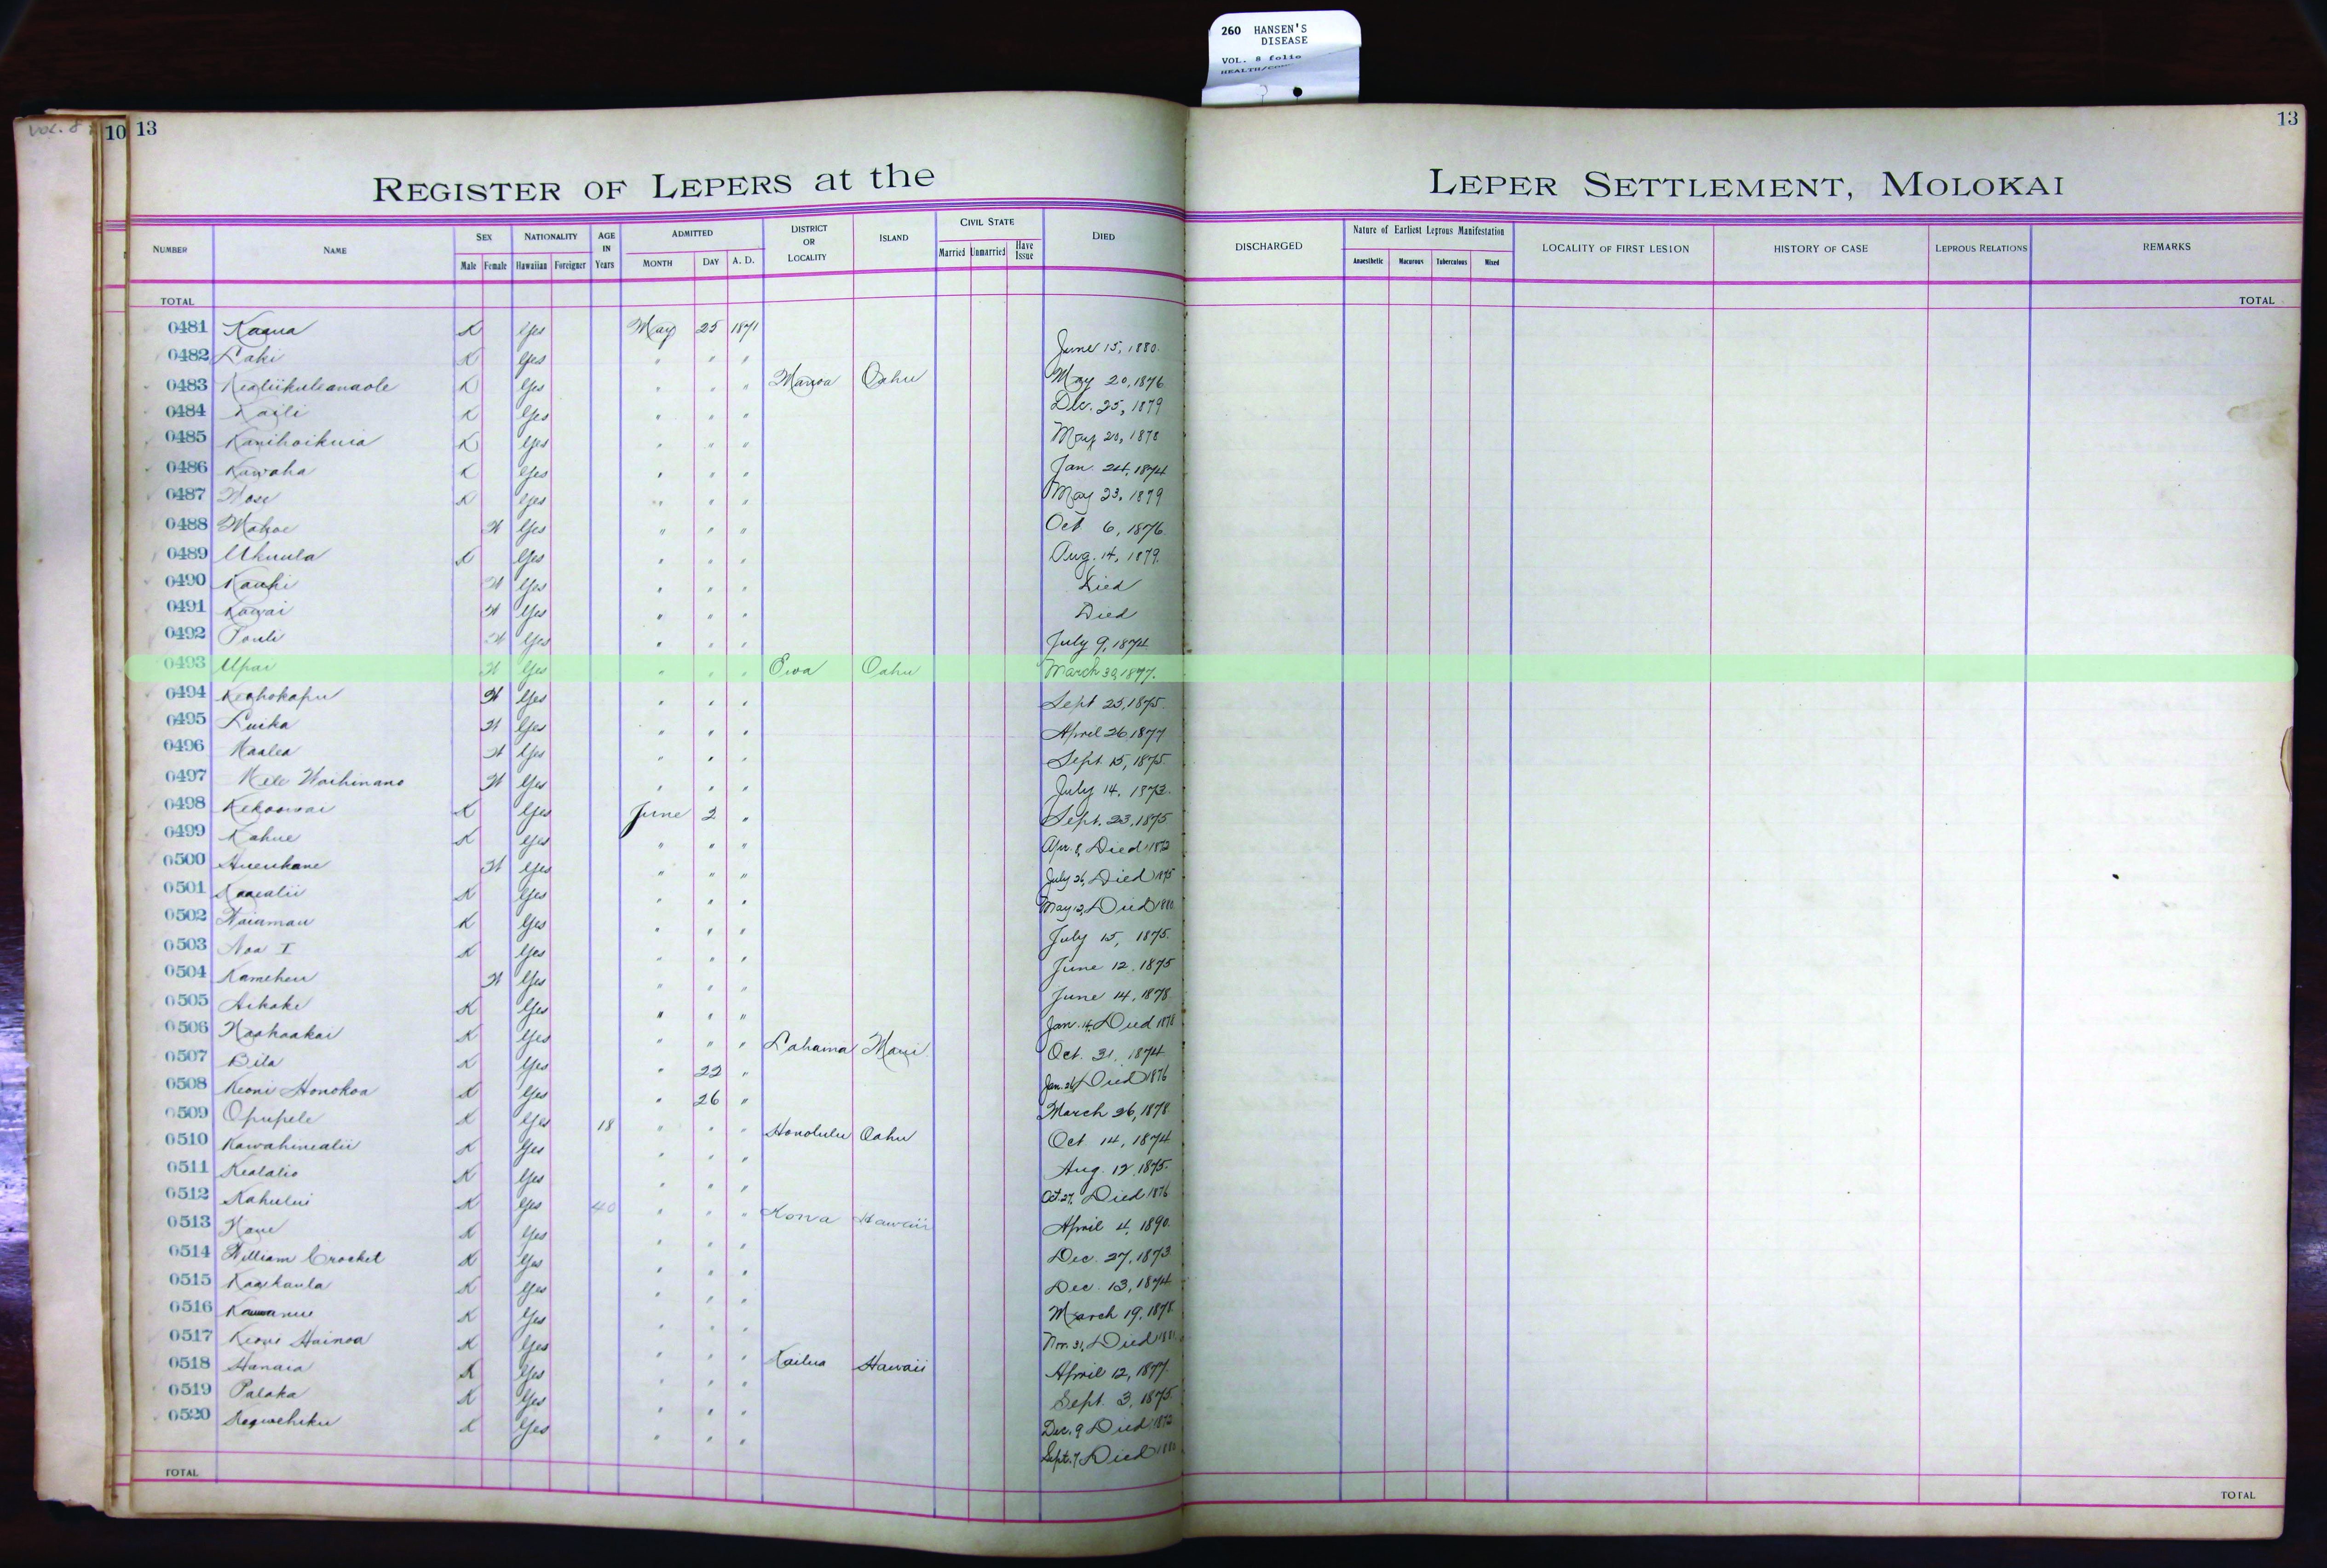 260 HANSEN'S
DISEASE
VOL. 8 folio
VOL. 8
10 13
13
REGISTER OF LEPERS at the LEPER SETTLEMENT, MOLOKAI
NUMBER NAME SEX Male Female NATIONALITY Hawaiian Foreigner AGE IN Years ADMITTED MONTH DAY A. D. DISTRICT OR LOCALITY ISLAND CIVIL STATE Married Unmarried Have Issue DIED DISCHARGED Nature of Earliest Leprous Manifestation Anaesthetic Macurous Tuberculous Mixed LOCALITY OF FIRST LESION HISTORY OF CASE LEPROUS RELATIONS REMARKS
TOTAL TOTAL
0481 Kaaua K Yes May 25 1871
0482 Laki K Yes " " " June 15, 1880.
0483 Kealiikuleanaole K Yes " " " Manoa Oahu May 20, 1876
0484 Kaili K Yes " " " Dec. 25, 1879
0485 Kanihoikuia K Yes " " " May 20, 1878
0486 Kawaha K Yes " " " Jan. 24, 1874
0487 K Yes " " " May 23, 1879
0488 Mahoe W Yes " " " Oct 6, 1876.
0489 Ukuula K Yes " " " Aug. 14, 1879.
0490 Kauhi W Yes " " " Died
0491 Kawai W Yes " " " Died
0492 Pouli W Yes " " " July 9, 1874
0493 Upai W Yes " " " Ewa Oahu March 30, 1877.
0494 Keohokapu W Yes " " " Sept 25, 1875.
0495 Luika W Yes " " " April 26 1877
0496 Kaalea W Yes " " " Sept. 15, 1875.
0497 Mele Waihinano W Yes " " " July 14, 1873.
0498 Kekoowai K Yes June 2 " Sept. 23, 1875
0499 Kahue K Yes " " " Apr. 8, Died 1872
0500 Hueukane W Yes " " " July 26, Died 1875
0501 Kaaealii K Yes " " " May 12, Died 1880
0502 Waiamau K Yes " " " July 15, 1875.
0503 Noa I K Yes " " " June 12. 1875
0504 Kameheu W Yes " " " June 14, 1878
0505 Aikake K Yes " " " Jan. 14, Died 1878
0506 Naahaakai K Yes " " " Lahaina Maui Oct. 31, 1874
0507 Bila K Yes " 22 " Jan. 26, Died 1876
0508 Keoni Honokoa K Yes " 26 " March 26, 1878
0509 Opupele K Yes 18 " " " Honolulu Oahu Oct 14, 1874
0510 Kawahinealii K Yes " " " Aug. 12, 1875.
0511 Kealalio K Yes " " " Oct. 27, Died 1876
0512 Kahului K Yes 40 " " " Kona Hawaii April 4, 1890.
0513 K Yes " " " Dec. 27, 1873
0514 William Crocket K Yes " " " Dec. 13, 1874
0515 Kaaikaula K Yes " " " March 19, 1878
0516 K Yes " " " Nov. 31, Died
0517 Keoni Hainoa K Yes " " " Kailua Hawaii April 12, 1877.
0518 Hanaia K Yes " " " Sept. 3, 1875.
0519 Palaka K Yes " " " Dec. 9 Died 1872
0520 K Yes " " " Sept. 7, Died
TOTAL TOTAL